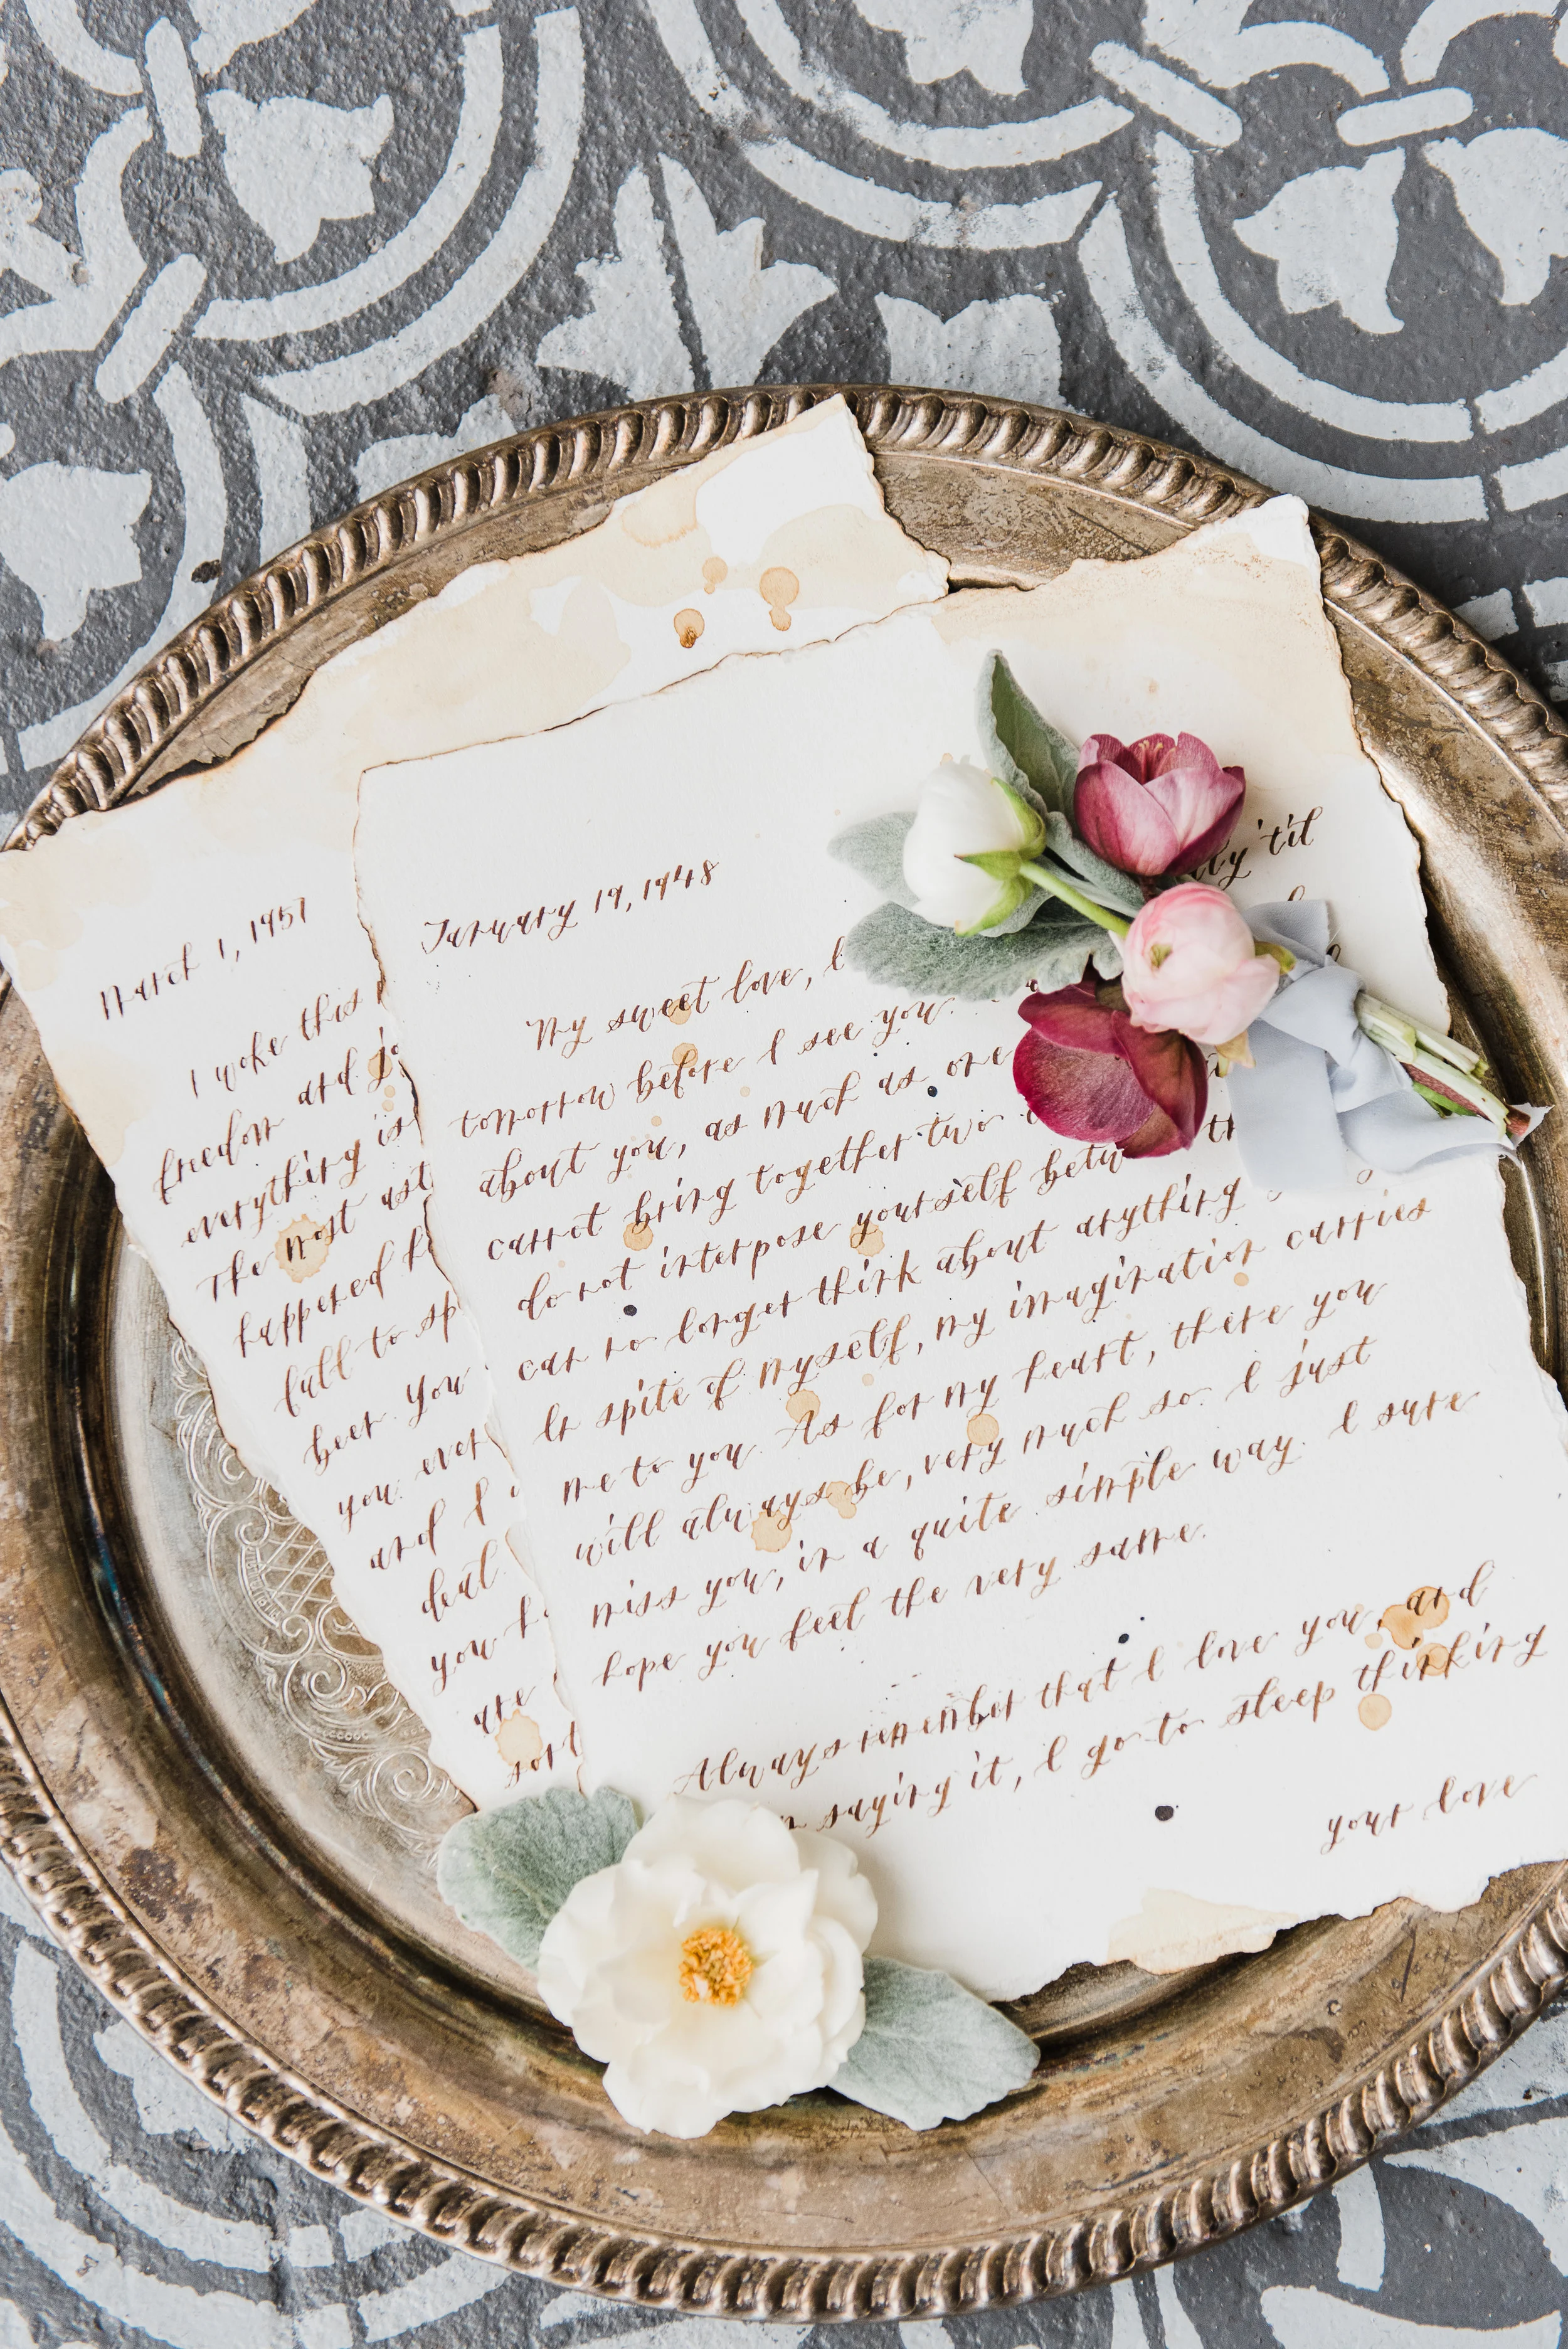 March 1, 1951
I woke this
freedom and
everything is
The most
happened
full to
been. you
you. ever
and I
deal.
you
are
sort
January 19, 1948
My sweet love,
'til
tomorrow before I see you.
about you, as much as one
cannot bring together two
do not interpose yourself
can no longer think about anything
In spite of myself, my imagination carries
me to you. As for my heart, there you
will always be, very much so. I just
miss you, in a quite simple way. I sure
hope you feel the very same.
Always remember that I love you, and
saying it, I go to sleep thinking
your love